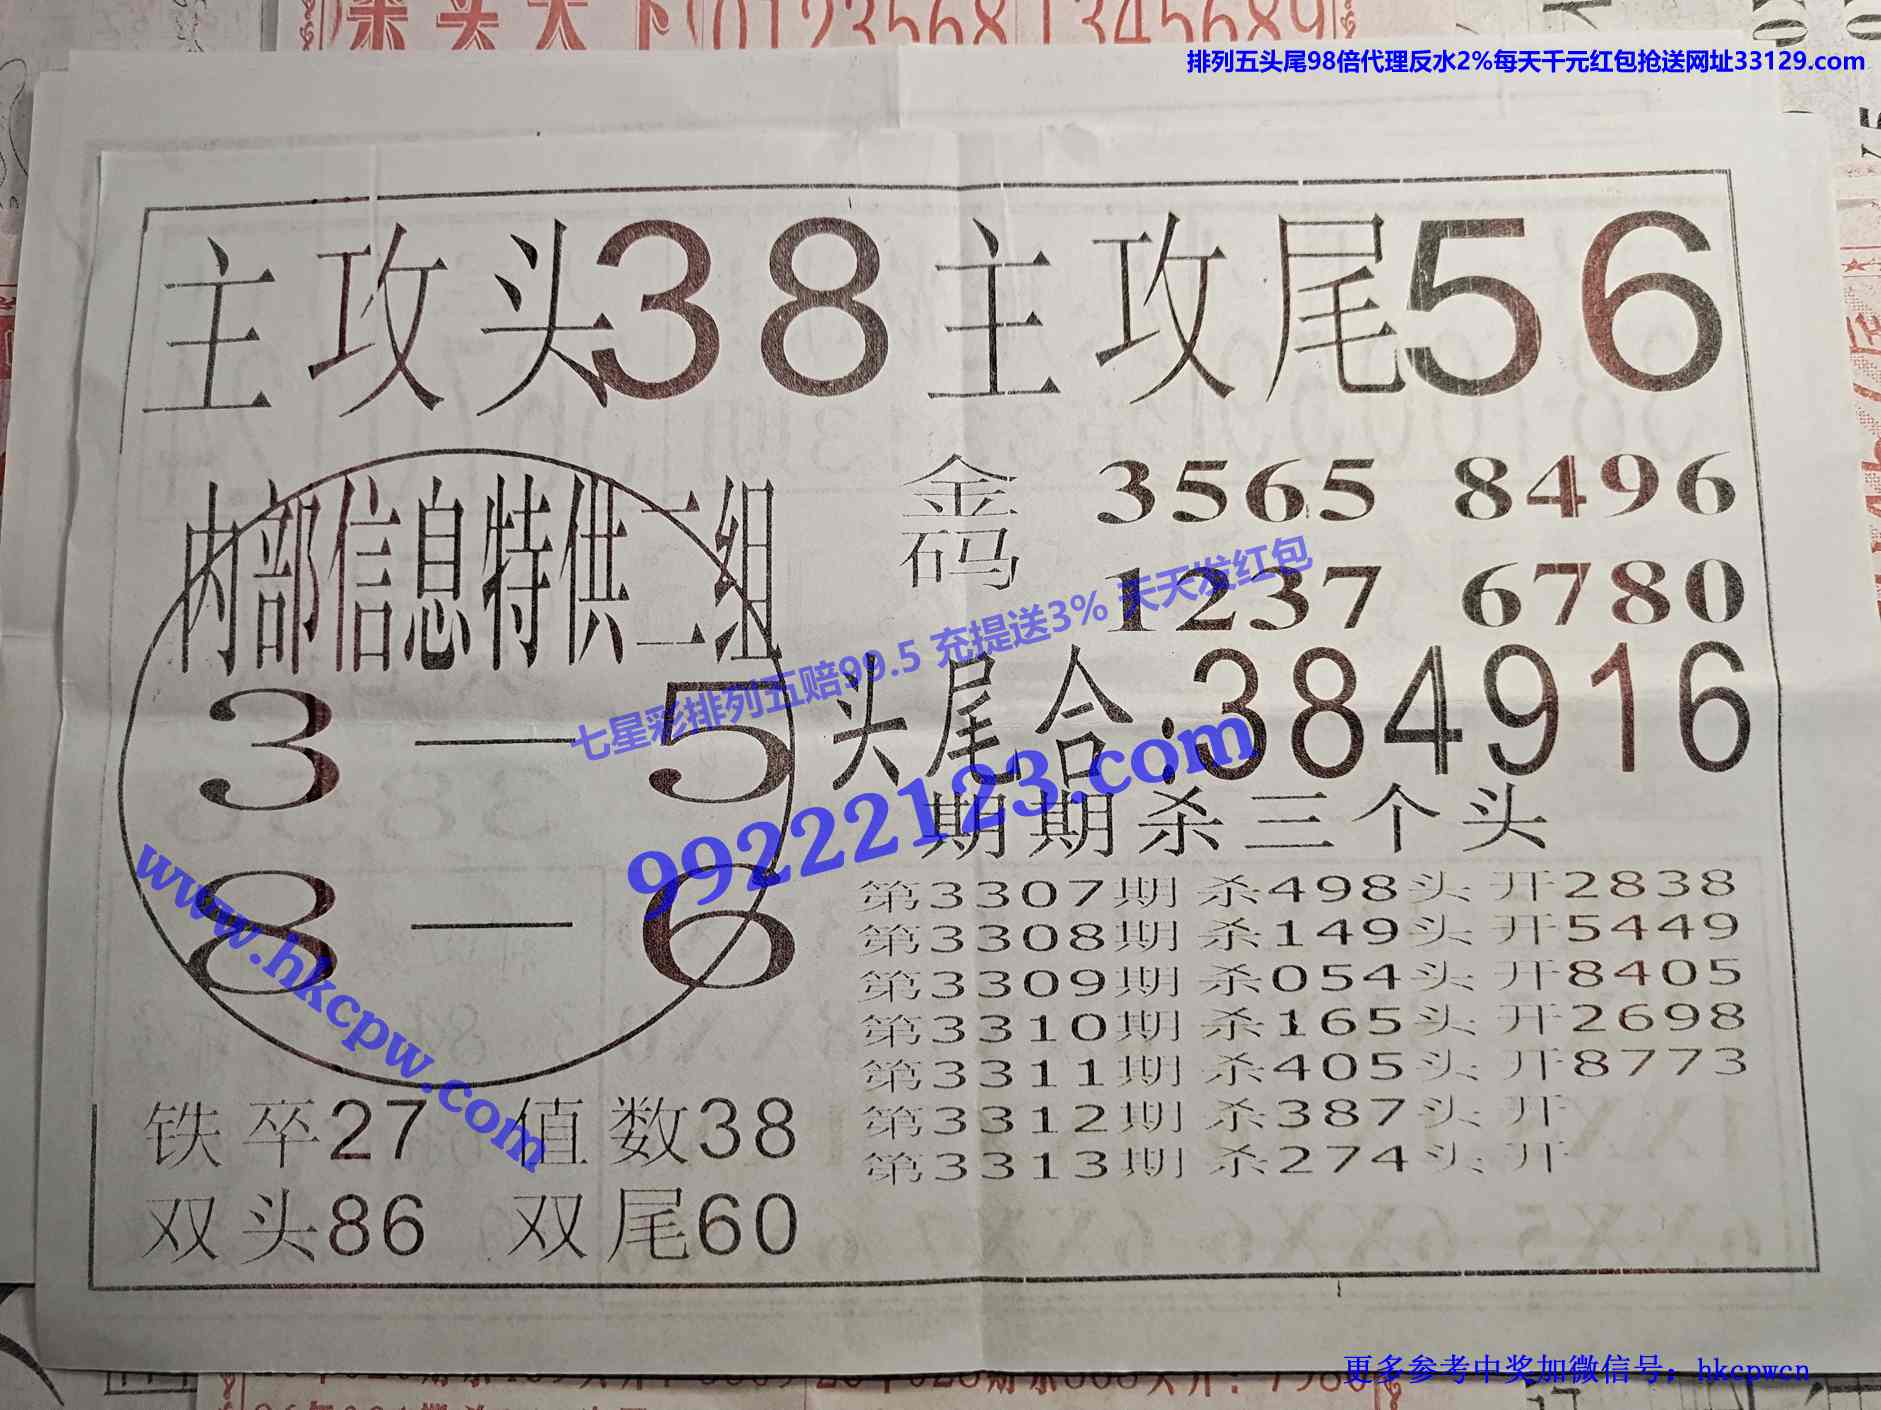 来头天下 0123568 1345689
排列五头尾98倍代理反水2%每天千元红包抢送网址33129.com
主攻头38 主攻尾56
内部信息特供二组
3—5
8—6
金码 3565 8496
1237 6780
头尾合:384916
期期杀三个头
第3307期 杀498头 开2838
第3308期 杀149头 开5449
第3309期 杀054头 开8405
第3310期 杀165头 开2698
第3311期 杀405头 开8773
第3312期 杀387头 开
第3313期 杀274头 开
铁卒27 值数38
双头86 双尾60
七星彩排列五赔99.5 充提送3% 天天发红包
99222123.com
www.hkcpw.com
更多参考中奖加微信号：hkcpwcn